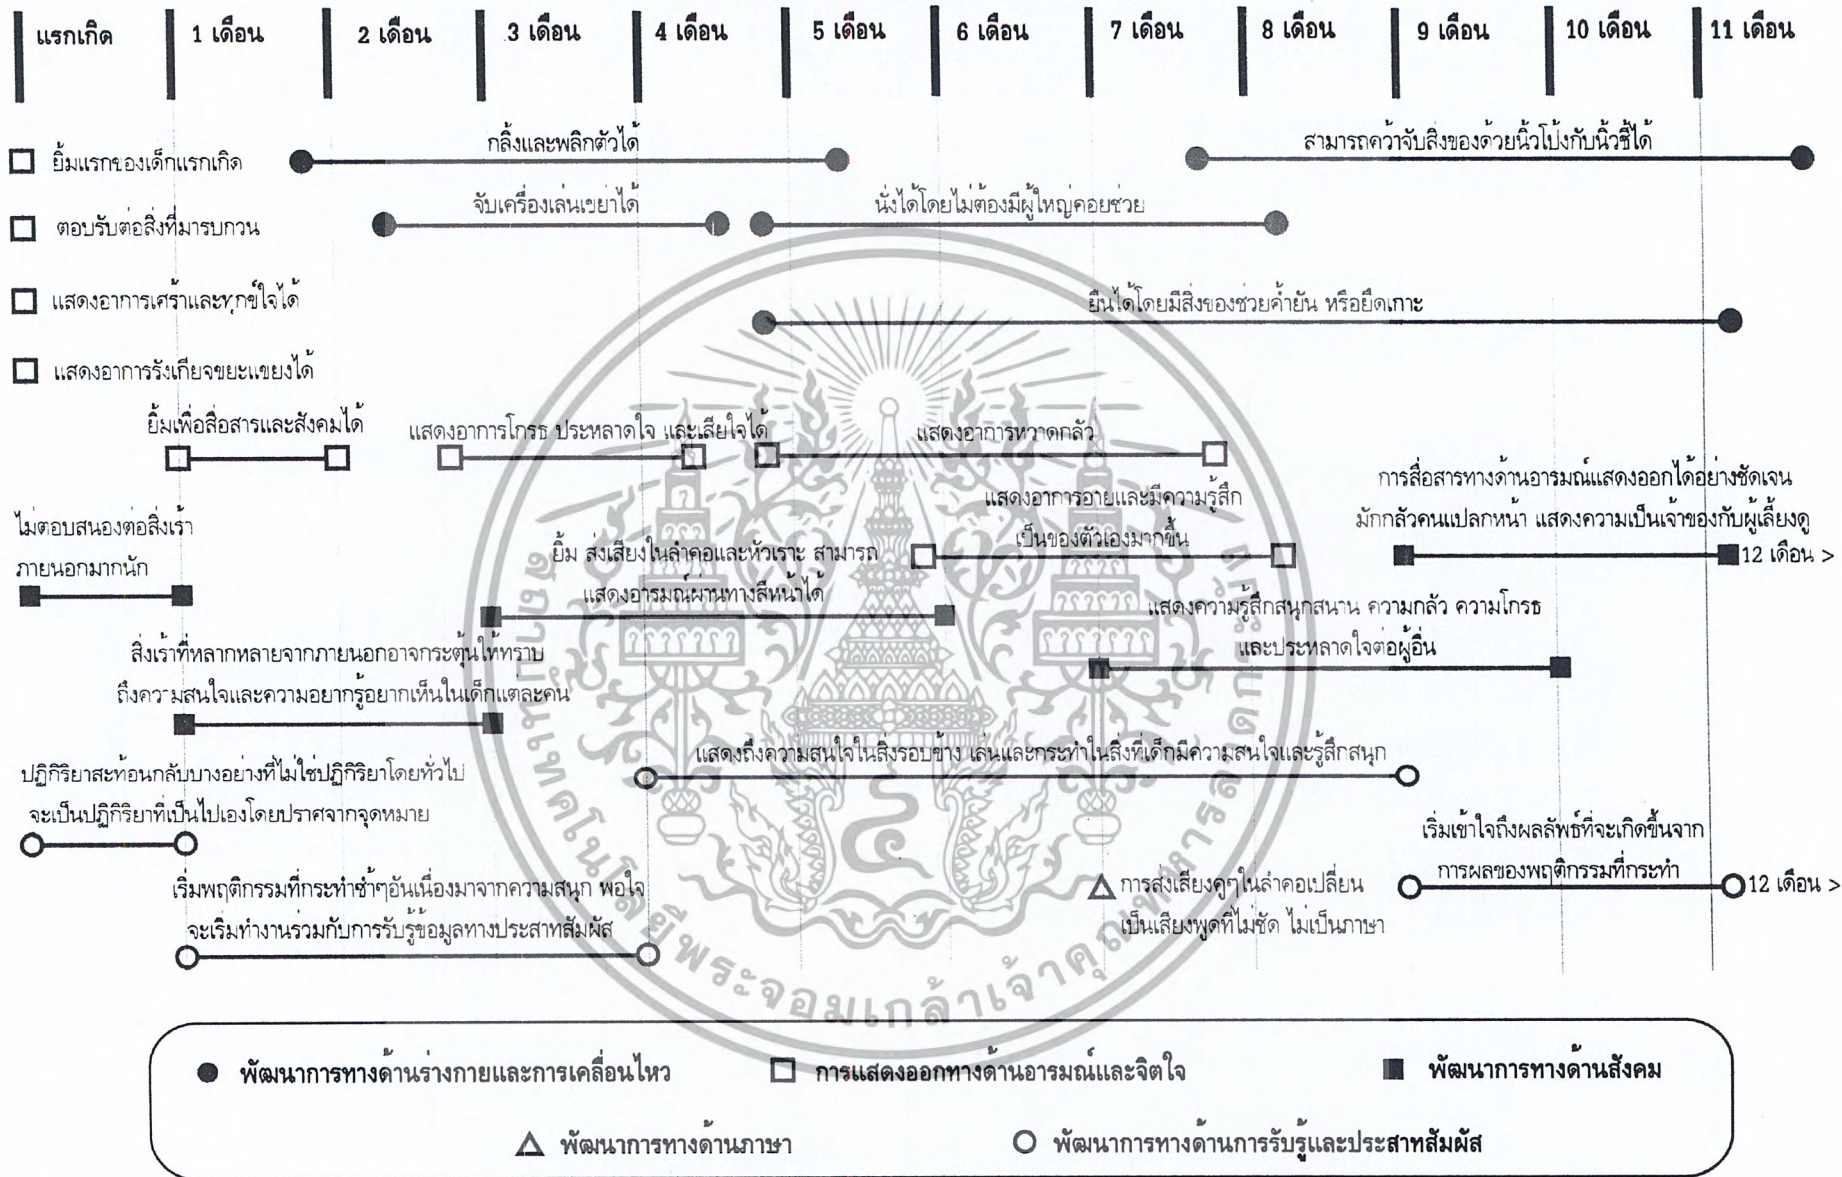 แรกเกิด 1 เดือน 2 เดือน 3 เดือน 4 เดือน 5 เดือน 6 เดือน 7 เดือน 8 เดือน 9 เดือน 10 เดือน 11 เดือน
ยิ้มแรกของเด็กแรกเกิด
กลิ้งและพลิกตัวได้
สามารถคว้าจับสิ่งของด้วยนิ้วโป้งกับนิ้วชี้ได้
ตอบรับต่อสิ่งที่มารบกวน
จับเครื่องเล่นเขย่าได้
นั่งได้โดยไม่ต้องมีผู้ใหญ่คอยช่วย
แสดงอาการเศร้าและทุกข์ใจได้
ยืนได้โดยมีสิ่งของช่วยค้ำยัน หรือยึดเกาะ
แสดงอาการรังเกียจขยะแขยงได้
ยิ้มเพื่อสื่อสารและสังคมได้
แสดงอาการโกรธ ประหลาดใจ และเสียใจได้
แสดงอาการหวาดกลัว
แสดงอาการอายและมีความรู้สึก
เป็นของตัวเองมากขึ้น
การสื่อสารทางด้านอารมณ์แสดงออกได้อย่างชัดเจน
มักกลัวคนแปลกหน้า แสดงความเป็นเจ้าของกับผู้เลี้ยงดู
12 เดือน >
ไม่ตอบสนองต่อสิ่งเร้า
ภายนอกมากนัก
ยิ้ม ส่งเสียงในลำคอและหัวเราะ สามารถ
แสดงอารมณ์ผ่านทางสีหน้าได้
แสดงความรู้สึกสนุกสนาน ความกลัว ความโกรธ
และประหลาดใจต่อผู้อื่น
สิ่งเร้าที่หลากหลายจากภายนอกอาจกระตุ้นให้ทราบ
ถึงความสนใจและความอยากรู้อยากเห็นในเด็กแต่ละคน
แสดงถึงความสนใจในสิ่งรอบข้าง เล่นและกระทำในสิ่งที่เด็กมีความสนใจและรู้สึกสนุก
ปฏิกิริยาสะท้อนกลับบางอย่างที่ไม่ใช่ปฏิกิริยาโดยทั่วไป
จะเป็นปฏิกิริยาที่เป็นไปเองโดยปราศจากจุดหมาย
เริ่มเข้าใจถึงผลลัพธ์ที่จะเกิดขึ้นจาก
การผลของพฤติกรรมที่กระทำ
12 เดือน >
เริ่มพฤติกรรมที่กระทำซ้ำๆอันเนื่องมาจากความสนุก พอใจ
จะเริ่มทำงานร่วมกับการรับรู้ข้อมูลทางประสาทสัมผัส
การส่งเสียงคูๆในลำคอเปลี่ยน
เป็นเสียงพูดที่ไม่ชัด ไม่เป็นภาษา
สถาบันเทคโนโลยีพระจอมเกล้าเจ้าคุณทหารลาดกระบัง
พัฒนาการทางด้านร่างกายและการเคลื่อนไหว
การแสดงออกทางด้านอารมณ์และจิตใจ
พัฒนาการทางด้านสังคม
พัฒนาการทางด้านภาษา
พัฒนาการทางด้านการรับรู้และประสาทสัมผัส